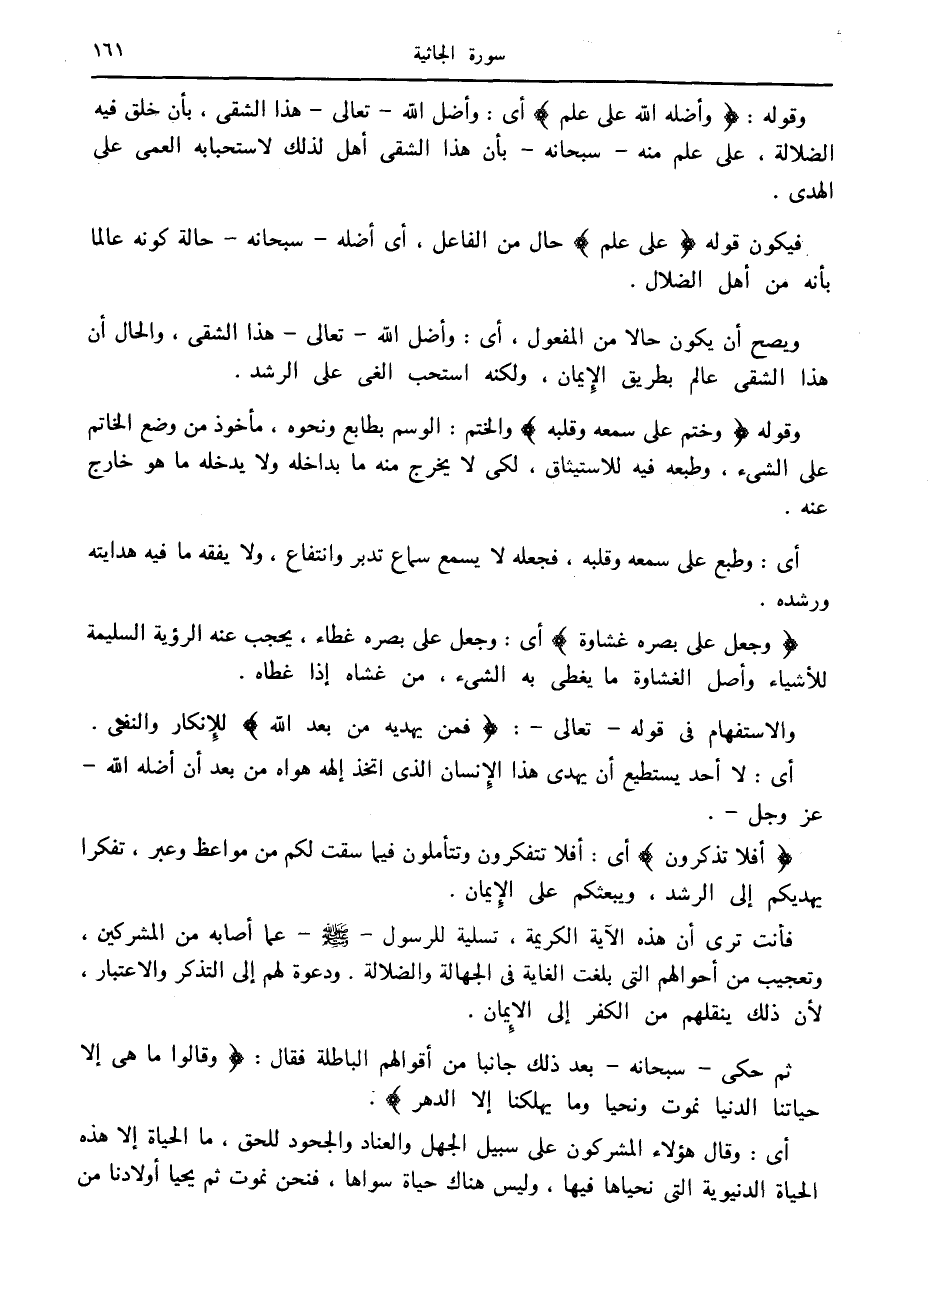 سورة الجاثية ١٦١
وقوله : ﴿ وأضله الله على علم ﴾ أى : وأضل الله – تعالى – هذا الشقى ، بأن خلق فيه
الضلالة ، على علم منه – سبحانه – بأن هذا الشقى أهل لذلك لاستحبابه العمى على
الهدى .
فيكون قوله ﴿ على علم ﴾ حال من الفاعل ، أى أضله – سبحانه – حالة كونه عالما
بأنه من أهل الضلال .
ويصح أن يكون حالا من المفعول ، أى : وأضل الله – تعالى – هذا الشقى ، والحال أن
هذا الشقى عالم بطريق الإيمان ، ولكنه استحب الغى على الرشد .
وقوله ﴿ وختم على سمعه وقلبه ﴾ والختم : الوسم بطابع ونحوه ، مأخوذ من وضع الخاتم
على الشىء ، وطبعه فيه للاستيثاق ، لكى لا يخرج منه ما بداخله ولا يدخله ما هو خارج
عنه .
أى : وطبع على سمعه وقلبه ، فجعله لا يسمع سماع تدبر وانتفاع ، ولا يفقه ما فيه هدايته
ورشده .
﴿ وجعل على بصره غشاوة ﴾ أى : وجعل على بصره غطاء ، يحجب عنه الرؤية السليمة
للأشياء وأصل الغشاوة ما يغطى به الشىء ، من غشاه إذا غطاه .
والاستفهام فى قوله – تعالى – : ﴿ فمن يهديه من بعد الله ﴾ للإنكار والنفى .
أى : لا أحد يستطيع أن يهدى هذا الإنسان الذى اتخذ إلهه هواه من بعد أن أضله الله –
عز وجل – .
﴿ أفلا تذكرون ﴾ أى : أفلا تتفكرون وتتأملون فيما سقت لكم من مواعظ وعبر ، تفكرا
يهديكم إلى الرشد ، ويبعثكم على الإيمان .
فأنت ترى أن هذه الآية الكريمة ، تسلية للرسول – ﷺ – عما أصابه من المشركين ،
وتعجيب من أحوالهم التى بلغت الغاية فى الجهالة والضلالة . ودعوة لهم إلى التذكر والاعتبار ،
لأن ذلك ينقلهم من الكفر إلى الإيمان .
ثم حكى – سبحانه – بعد ذلك جانبا من أقوالهم الباطلة فقال : ﴿ وقالوا ما هى إلا
حياتنا الدنيا نموت ونحيا وما يهلكنا إلا الدهر ﴾ .
أى : وقال هؤلاء المشركون على سبيل الجهل والعناد والجحود للحق ، ما الحياة إلا هذه
الحياة الدنيوية التى نحياها فيها ، وليس هناك حياة سواها ، فنحن نموت ثم يحيا أولادنا من